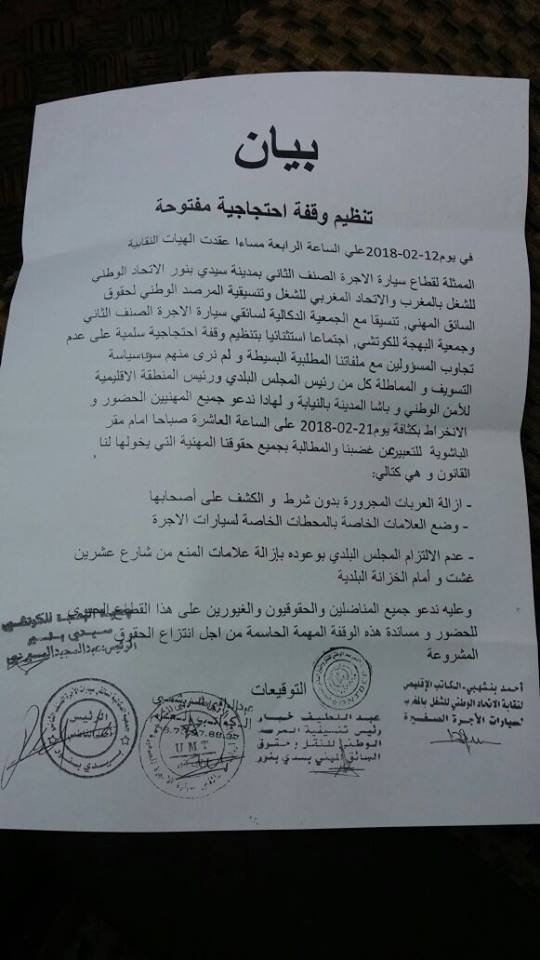 بيان
تنظيم وقفة احتجاجية مفتوحة
في يوم12-02-2018علي الساعة الرابعة مساءا عقدت الهيات النقابية
الممثلة لقطاع سيارة الاجرة الصنف الثاني بمدينة سيدي بنور الاتحاد الوطني
للشغل بالمغرب والاتحاد المغربي للشغل وتنسيقية المرصد الوطني لحقوق
السائق المهني, تنسيقا مع الجمعية الدكالية لسائقي سيارة الاجرة الصنف الثاني
وجمعية البهجة للكوتشي, اجتماعا استثنائيا بتنظيم وقفة احتجاجية سلمية على عدم
تجاوب المسؤولين مع ملفاتنا المطلبية البسيطة و لم نرى منهم سوى سياسة
التسويف و المماطلة كل من رئيس المجلس البلدي ورئيس المنطقة الاقليمية
للأمن الوطني و باشا المدينة بالنيابة و لهادا ندعو جميع المهنيين الحضور و
الانخراط بكثافة يوم21-02-2018 على الساعة العاشرة صباحا امام مقر
الباشوية للتعبيرعن غضبنا والمطالبة بجميع حقوقنا المهنية التي يخولها لنا
القانون و هي كتالي:
- ازالة العربات المجرورة بدون شرط و الكشف على أصحابها
- وضع العلامات الخاصة بالمحطات الخاصة لسيارات الاجرة
- عدم الالتزام المجلس البلدي بوعوده بإزالة علامات المنع من شارع عشرين
غشت و أمام الخزانة البلدية
وعليه ندعو جميع المناضلين والحقوقيون والغيورين على هذا القطاع
للحضور و مساندة هذه الوقفة المهمة الحاسمة من اجل انتزاع الحقوق
المشروعة
التوقيعات
أحمد بنشهبي-الكاتب الإقليمي
لنقابة الاتحاد الوطني للشغل بالمغرب
لسيارات الأجرة الصغيرة
عبد اللطيف خبار
رئيس تنسيقية المرصد
الوطني للنقل وحقوق
السائق المهني بسدي بنور
UMT
الرئيس
للكوتشي
سيدي بنور
الرئيس:عبدالمجيد